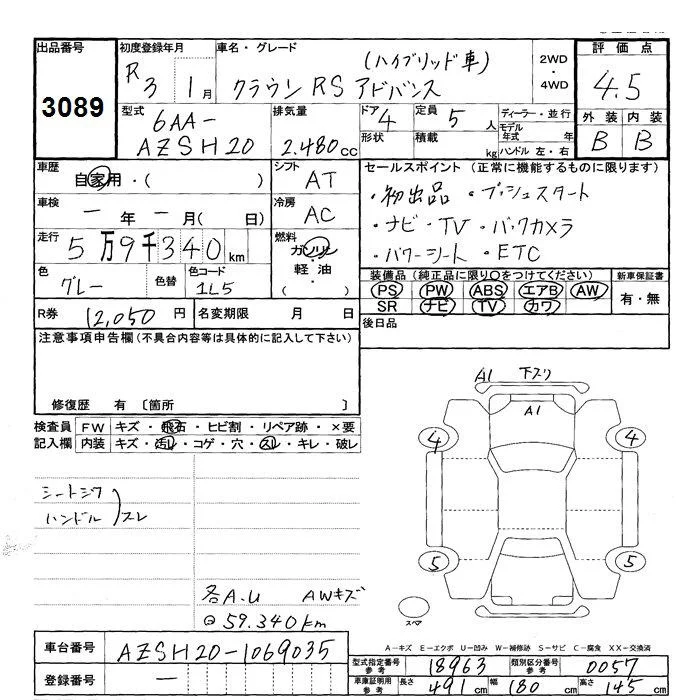 出品番号
3089
初度登録年月
R 3 1月
車名・グレード
(ハイブリッド車)
クラウン RS アドバンス
2WD
・
4WD
評価点
4.5
外装 内装
B B
型式
6AA-
AZSH20
排気量
2.480cc
ドア 4
形状
定員 5 人
積載 kg
ディーラー・並行
モデル年式 年
ハンドル 左・右
車歴
自家用・( )
シフト
AT
車検
一年 一月( 日)
冷房
AC
走行
5万9千340km
燃料
ガソリン
軽油
・( )
色
グレー
色替
色コード
1L5
R券 12,050円
名変期限 月 日
セールスポイント (正常に機能するものに限ります)
・初出品 ・プッシュスタート
・ナビ・TV・バックカメラ
・パワーシート・ETC
装備品 (純正品に限り○をつけてください)
PS PW ABS エアB AW
SR ナビ TV カワ
新車保証書
有・無
後日品
注意事項申告欄 (不具合内容等は具体的に記入して下さい)
修復歴 有 〔箇所 〕
検査員記入欄
FW キズ・飛石・ヒビ割・リペア跡・×要
内装 キズ・汚レ・コゲ・穴・スレ・キレ・破レ
シートシワ
ハンドル スレ
各A.U AWキズ
59.340km
A1 下スリ
A1
4 4
5 5
スペア
A-キズ E-エクボ U-凹み W-補修跡 S-サビ C-腐食 XX-交換済
車台番号 AZSH20-1069035
登録番号 一
型式指定番号 参考 18963
類別区分番号 参考 0057
車庫証明用 参考 長さ 491cm 幅 180cm 高さ 145cm